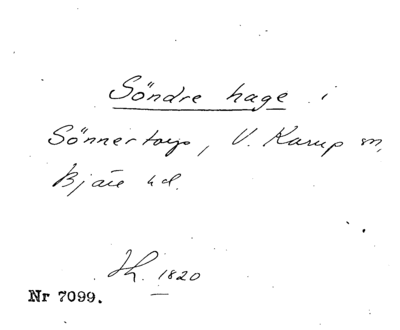 Söndre hage i
Sönnertorp, V. Karup sn,
Bjäre hd.
Jh. 1820
Nr 7099.